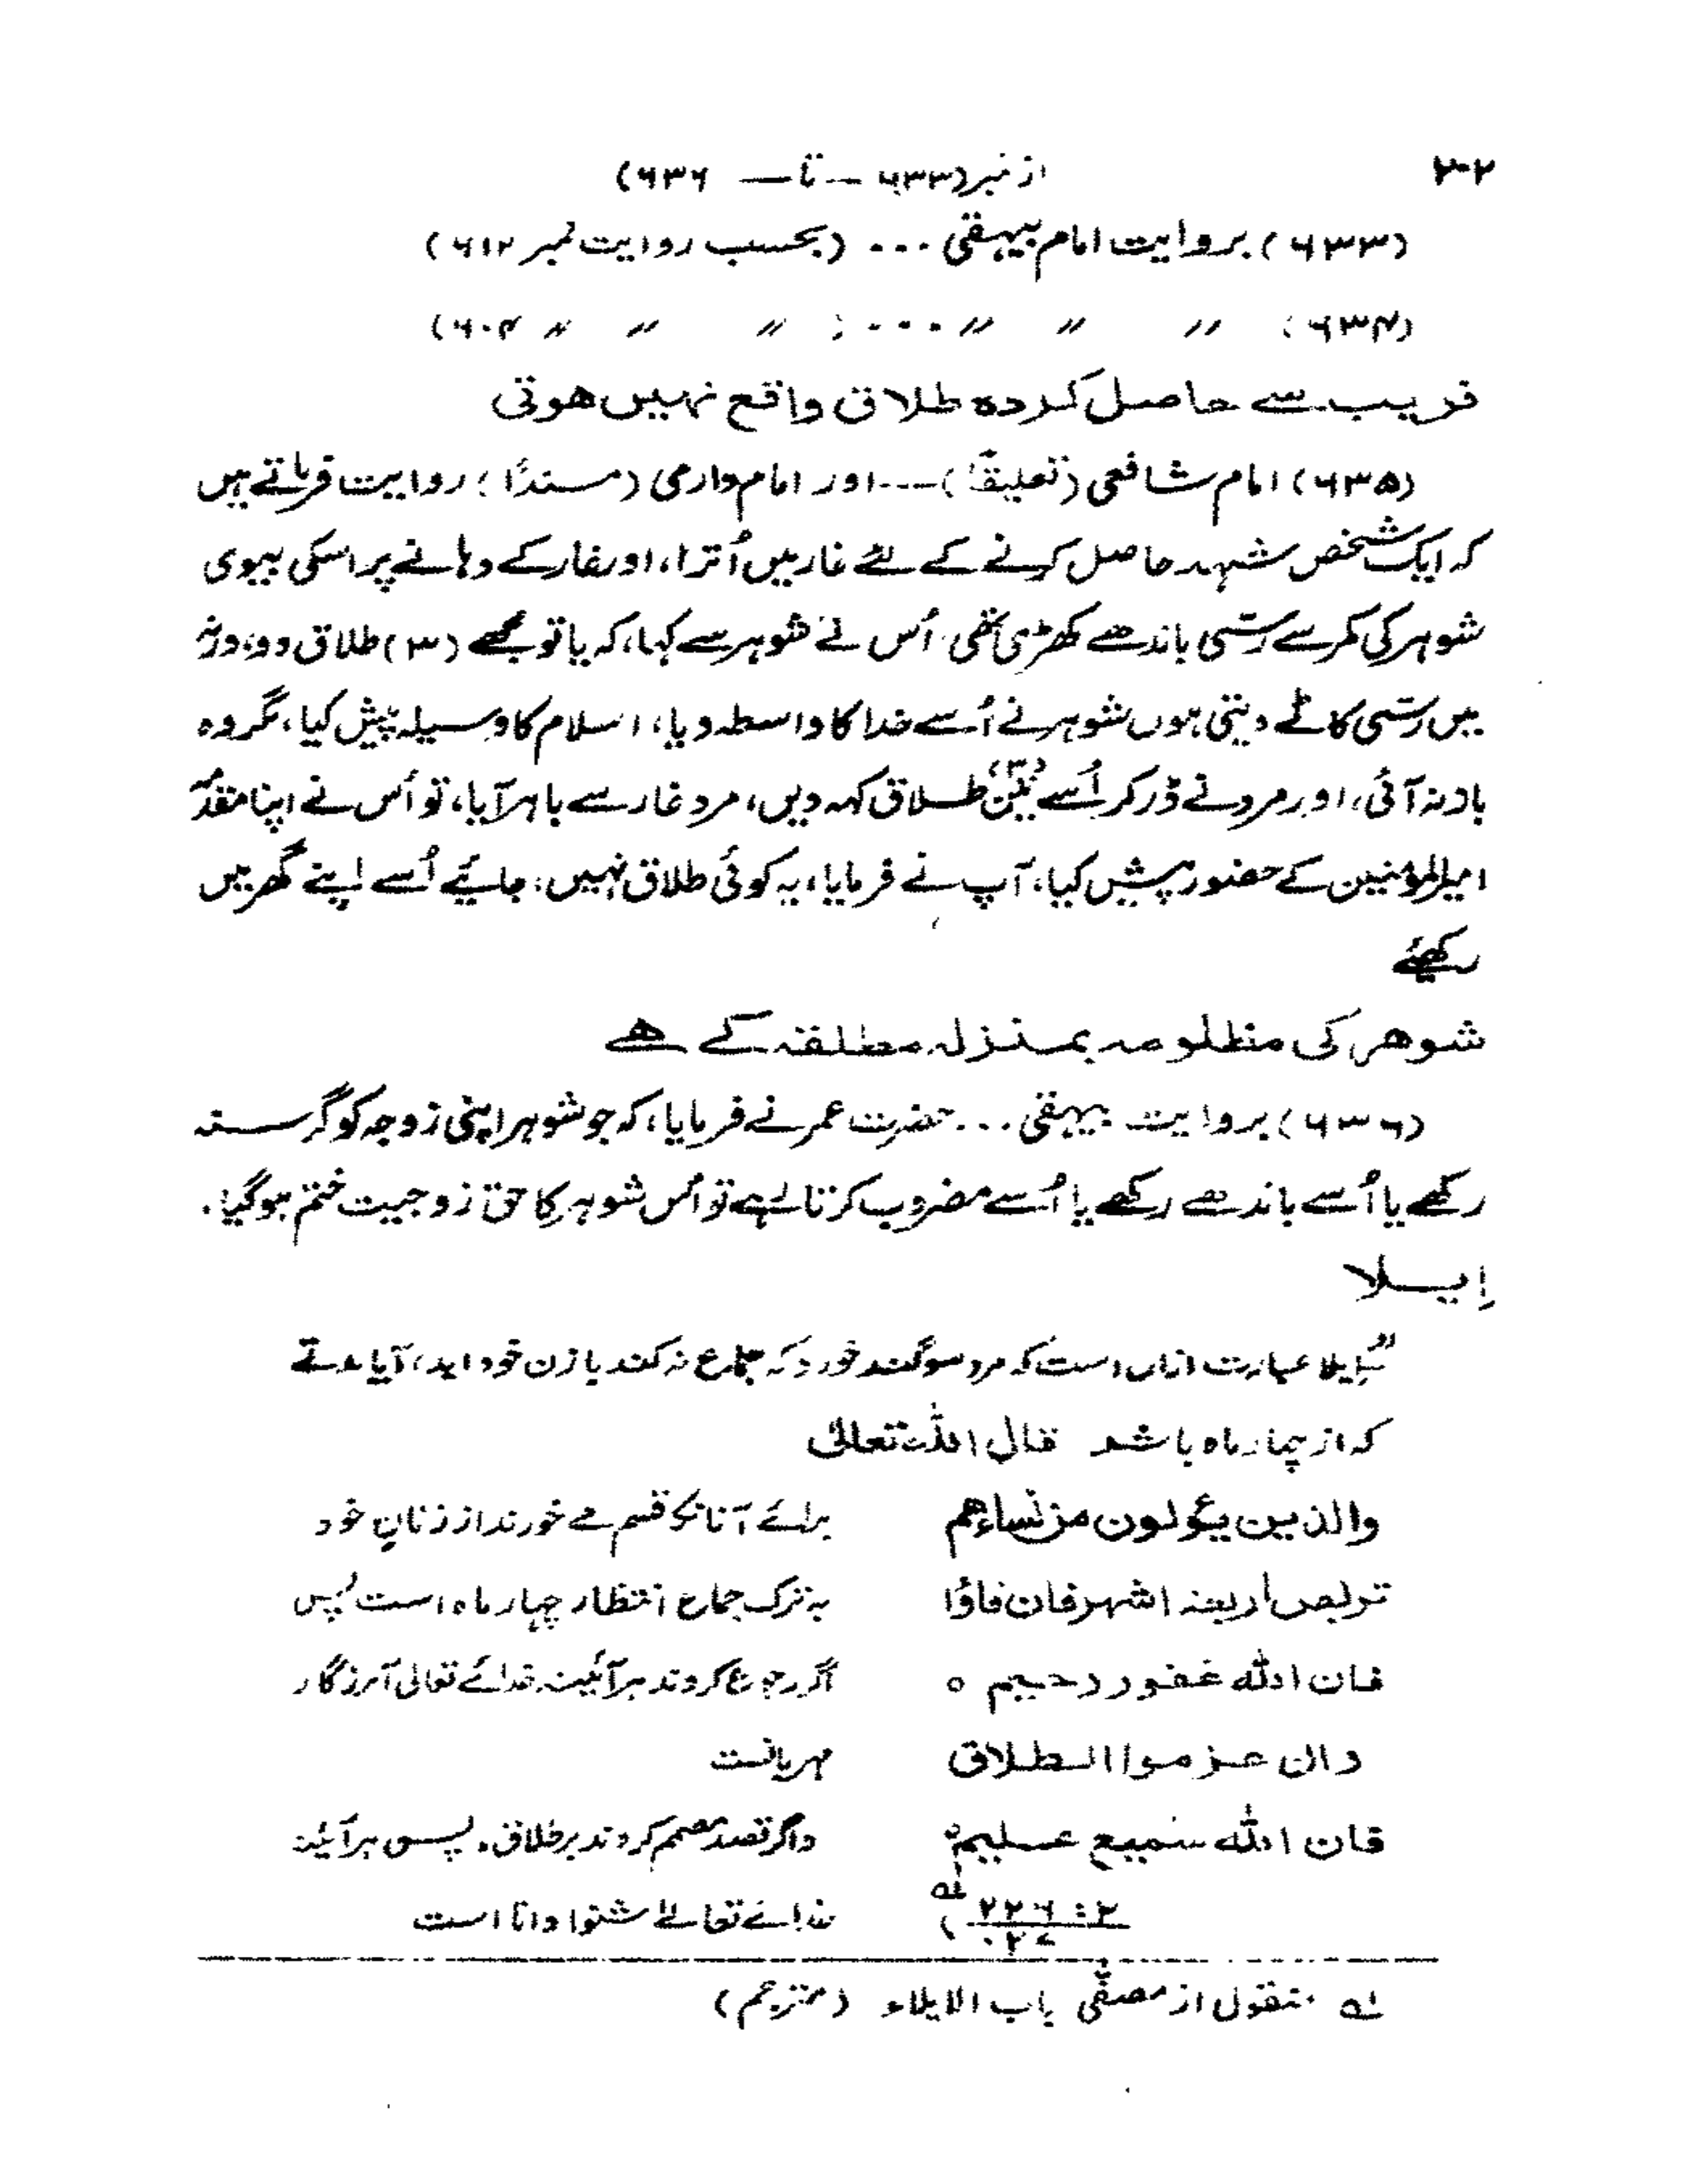 ۲۰۲ از نمبر (۶۳۳ — تا — ۶۳۶)
(۶۳۳) بروایت امام بیہقی ... (بحسب روایت نمبر ۶۱۲)
(۶۳۴) 〃 〃 〃 .... ( 〃 〃 〃 ۶۰۴)
فریب سے حاصل کردہ طلاق واقع نہیں ہوتی
(۶۳۵) امام شافعی (تعلیقاً) --- اور امام دارمی (مسنداً) روایت فرماتے ہیں
کہ ایک شخص شہد حاصل کرنے کے لئے غار میں اُترا، اور غار کے دہانے پر اسکی بیوی
شوہر کی کمر سے رسّی باندھے کھڑی تھی اُس نے شوہر سے کہا، کہ یا تو مجھے (۳) طلاق دو، ورنہ
میں رسّی کاٹے دیتی ہوں شوہر نے اُسے خدا کا واسطہ دیا، اسلام کا وسیلہ پیش کیا، مگر وہ
باز نہ آئی، اور مرد نے ڈر کر اُسے تین (۳) طلاق کہہ دیں، مرد غار سے باہر آیا، تو اُس نے اپنا مقدّمہ
امیر المؤمنین کے حضور پیش کیا، آپ نے فرمایا، یہ کوئی طلاق نہیں، جائیے اُسے اپنے گھر میں
رکھیئے
شوہر کی مظلومہ بمنزلہ مطلقہ کے ہے
(۶۳۶) بروایت بیہقی ... حضرت عمر نے فرمایا، کہ جو شوہر اپنی زوجہ کو گرسنہ
رکھے یا اُسے باندھے رکھے یا اُسے مضروب کرتا رہے تو اُس شوہر کا حق زوجیت ختم ہوگیا.
اِیلا
"اِیلا عبارت ازاں است کہ مرد سوگند خورد کہ جماع نہ کند با زن خود ابد، آیا مدتے
کہ از چہار ماہ باشد قال اللہ تعالیٰ
والذین یؤلون من نساءهم برائے آنانکہ قسم مے خورند از زنانِ خود
تربص اربعة اشهر فان فاؤا بہ ترک جماع انتظار چہار ماہ است پس
فان الله غفور رحیم ○ اگر رجوع کردند ہر آئینہ خدائے تعالی آمرزگار
وان عزموا الطلاق مہربانست
فان الله سمیع علیم ○ و اگر قصد مصمم کردند بر طلاق. پس ہر آئینہ
۲: ۲۲۶ ۲۷ ) لہ خدائے تعالےٰ شنوا دانا است
لہ منقول از مصفّٰی باب الایلاء (مترجم)